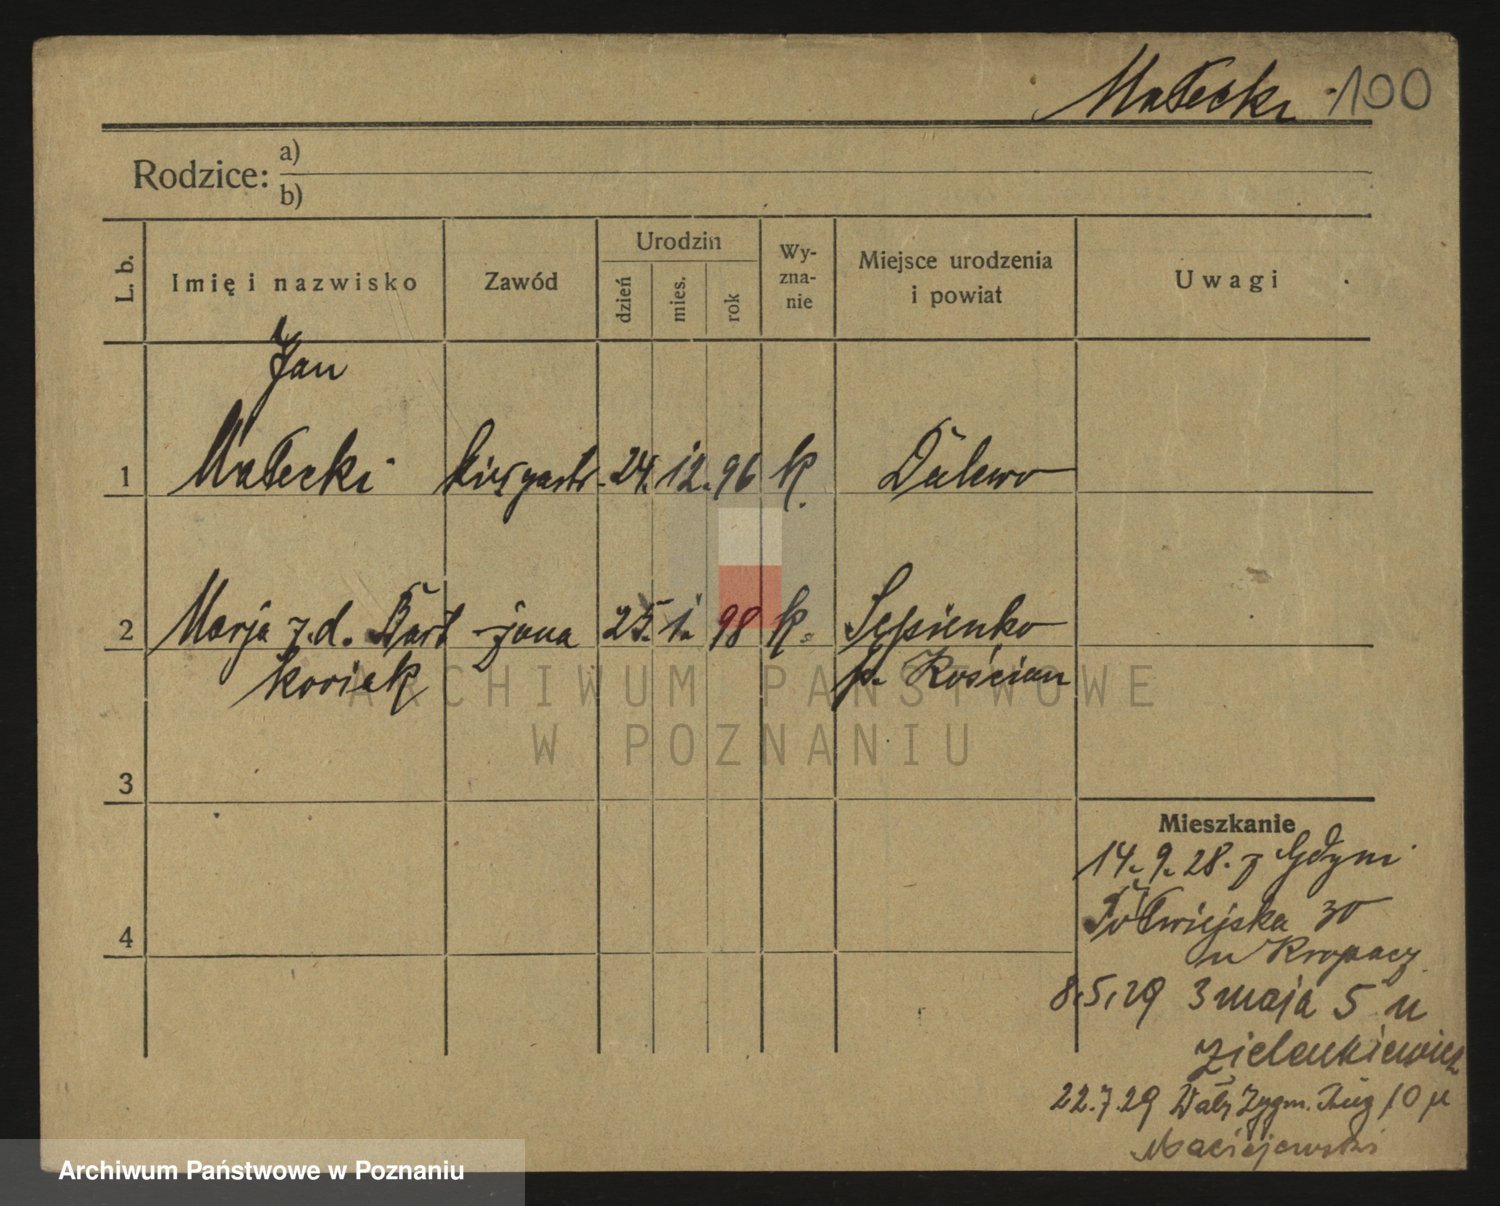 Małecki 100
Rodzice: a)
b)
L. b. Imię i nazwisko Zawód Urodzin dzień mies. rok Wy-zna-nie Miejsce urodzenia i powiat Uwagi
Jan
1 Małecki 24. 12. 96 k. Dalewo
2 Marja z.d. Bart żona 25. 1. 98 k. Sepienko
koviak p. Kościan
ARCHIWUM PAŃSTWOWE
W POZNANIU
3
Mieszkanie
14. 9. 28. z Gdyni
4 Półwiejska 30
u Kropacz
8.5.29 3 maja 5 u
Zielenkiewicz
22.7.29 Wały Zygm. Aug 10 u
Maciejewski
Archiwum Państwowe w Poznaniu